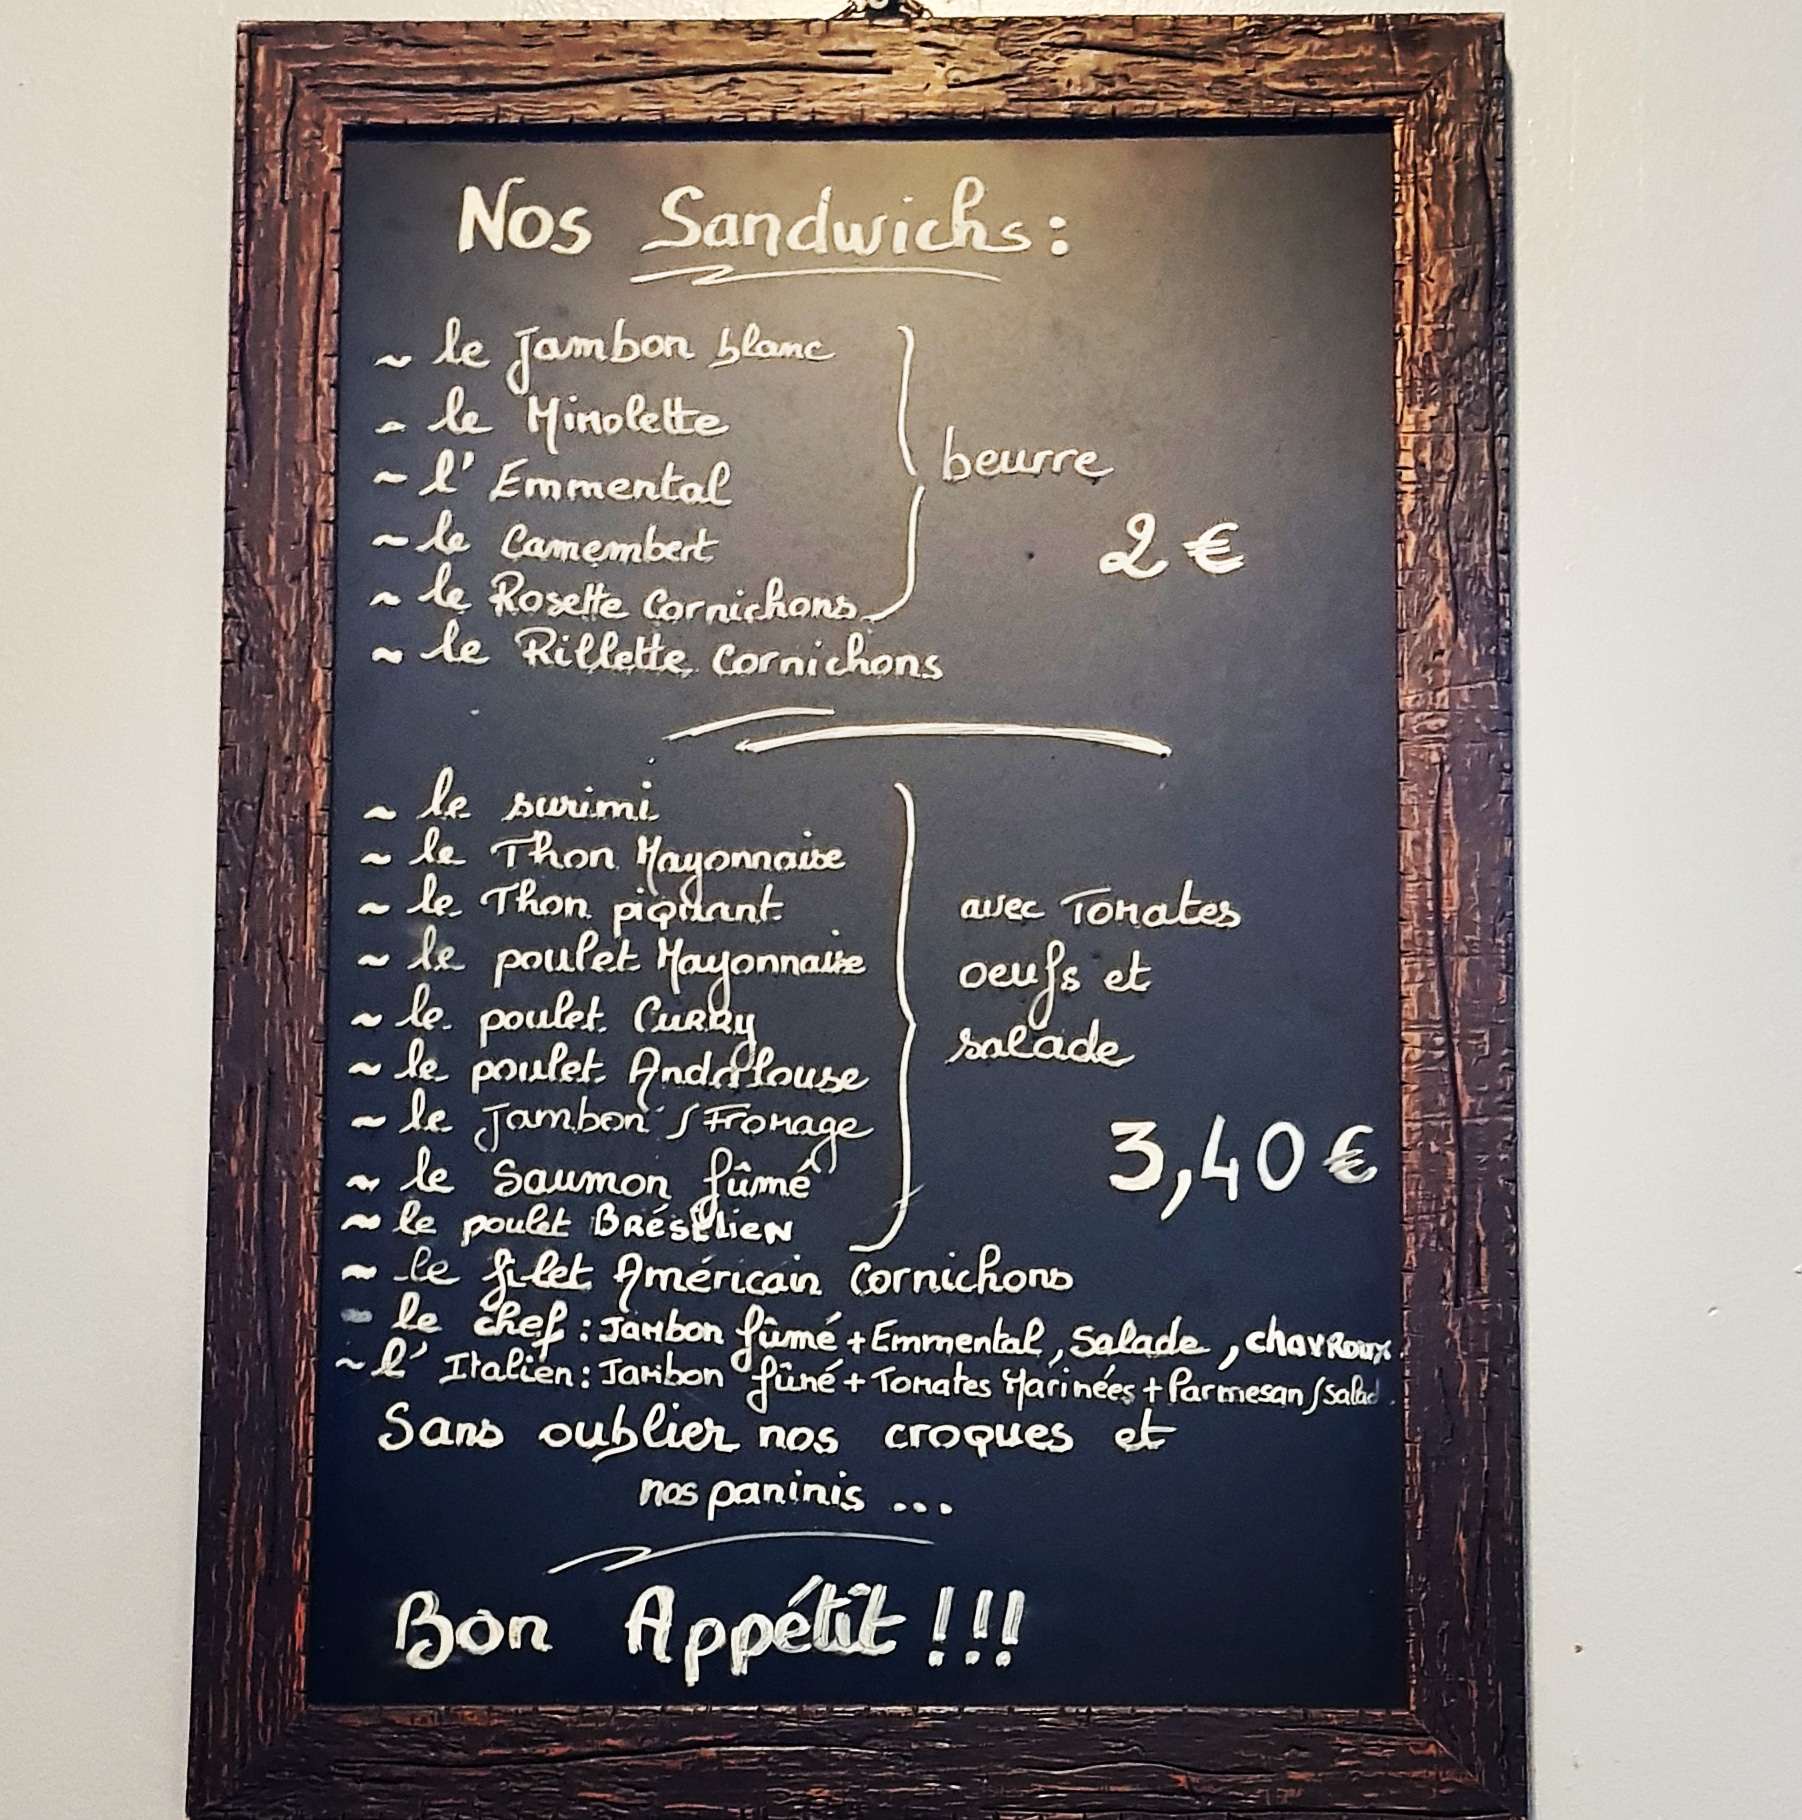 Nos Sandwichs :
~ le Jambon blanc
~ le Mimolette
~ l' Emmental
~ le Camembert
~ le Rosette Cornichons
beurre
2 €
~ le Rillette Cornichons
~ le surimi
~ le Thon Mayonnaise
~ le Thon piquant
~ le poulet Mayonnaise
~ le poulet Curry
~ le poulet Andalouse
~ le Jambon / Fromage
~ le Saumon fûmé
~ le poulet BRésilieN
avec Tomates
oeufs et
salade
3,40 €
~ le filet Américain Cornichons
~ le chef : Jambon fûmé + Emmental, Salade, chavroux.
~ l' Italien : Jambon fûmé + Tomates Marinées + Parmesan / Salad.
Sans oublier nos croques et
nos paninis ...
Bon Appétit !!!